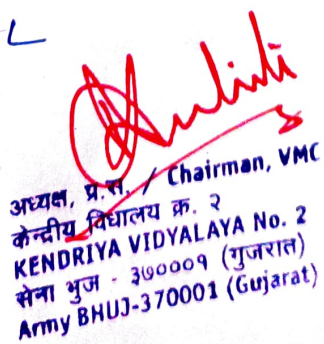 अध्यक्ष, प्र.स. / Chairman, VMC
केन्द्रीय विद्यालय क्र. २
KENDRIYA VIDYALAYA No. 2
सेना भुज - ३७०००१ (गुजरात)
Army BHUJ-370001 (Gujarat)